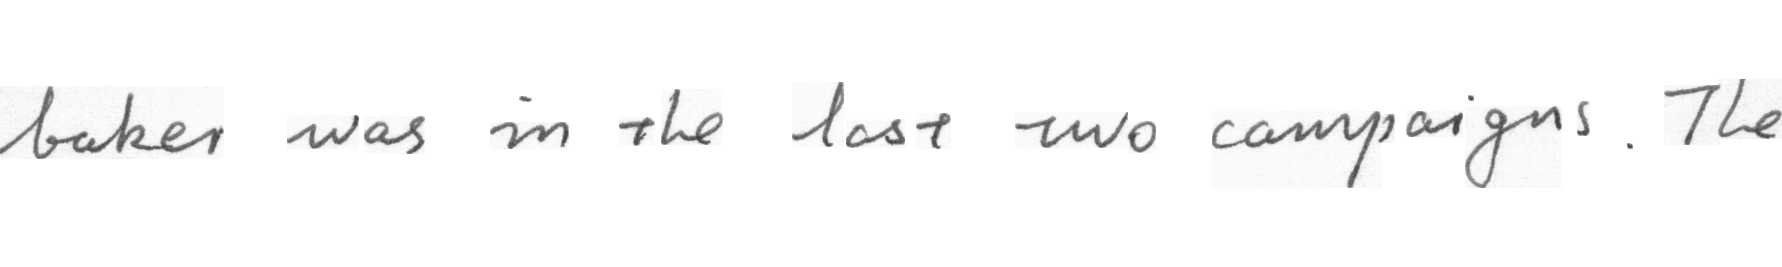 baker was in the last two campaigns. The